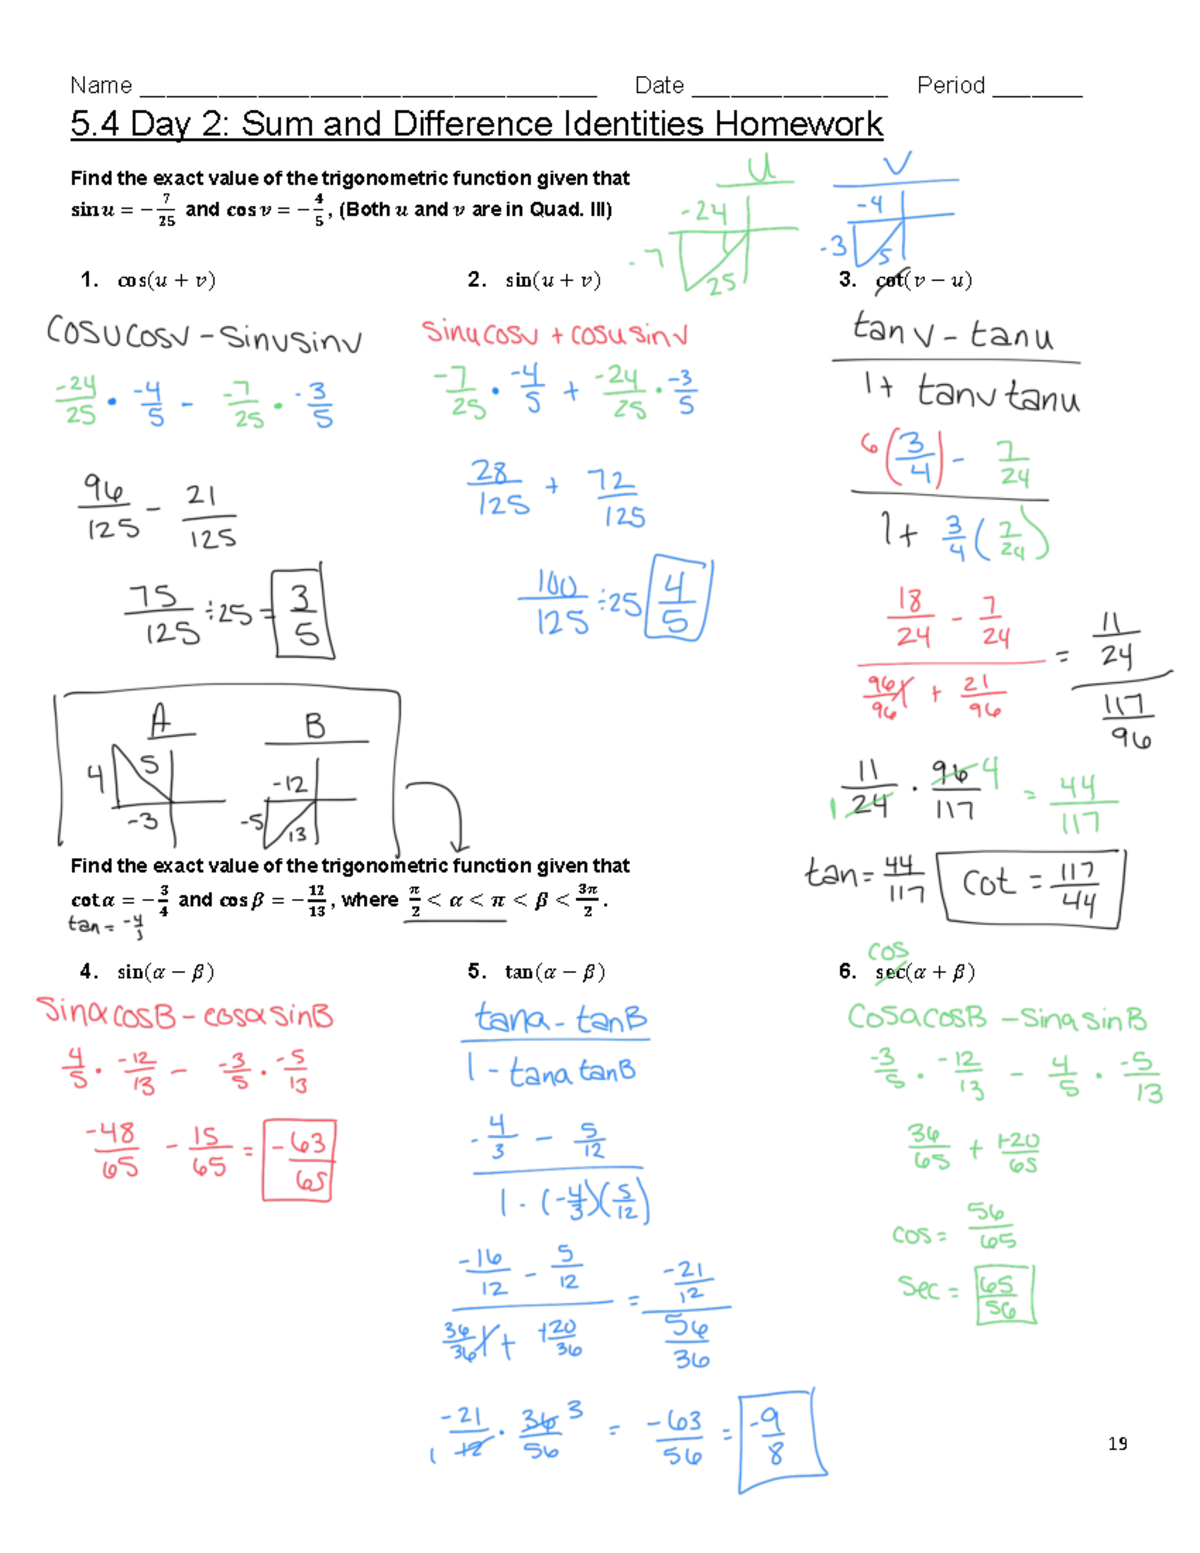 Name ___________________________________ Date _______________ Period _______
5.4 Day 2: Sum and Difference Identities Homework
Find the exact value of the trigonometric function given that
sin u = −7/25 and cos v = −4/5, (Both u and v are in Quad. III)
u
-24
-7
25
v
-4
-3
5
1. cos(u + v)
cosucosv - sinusinv
-24/25 • -4/5 - -7/25 • -3/5
96/125 - 21/125
75/125 ÷25 = 3/5
2. sin(u + v)
sinucosv + cosusinv
-7/25 • -4/5 + -24/25 • -3/5
28/125 + 72/125
100/125 ÷25 4/5
3. cot(v − u)
tanv - tanu
1+ tanvtanu
6(3/4) - 7/24
1+ 3/4(7/24)
18/24 - 7/24 = 11/24
96/96 1 + 21/96 117/96
11/24 1 • 96/117 4 = 44/117
tan = 44/117 cot = 117/44
A
4
5
-3
B
-12
-5
13
Find the exact value of the trigonometric function given that
cot α = −3/4 and cos β = −12/13, where π/2 < α < π < β < 3π/2.
tan = -4/3
4. sin(α − β)
sinαcosB - cosαsinB
4/5 • -12/13 - -3/5 • -5/13
-48/65 - 15/65 = -63/65
5. tan(α − β)
tana - tanB
1 - tana tanB
-4/3 - 5/12
1 - (-4/3)(5/12)
-16/12 - 5/12 = -21/12
36/36 1 + +20/36 56/36
-21/12 1 • 36/56 3 = -63/56 = -9/8
6. sec(α + β)
cos
cosacosB - sinasinB
-3/5 • -12/13 - 4/5 • -5/13
36/65 + +20/65
cos = 56/65
sec = 65/56
19